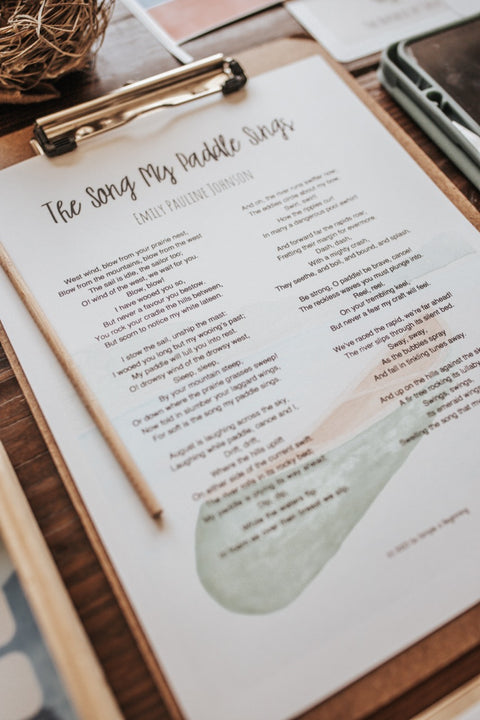 The Song My Paddle Sings
EMILY PAULINE JOHNSON
West wind, blow from your prairie nest,
Blow from the mountains, blow from the west
The sail is idle, the sailor too;
O! wind of the west, we wait for you.
Blow, blow!
I have wooed you so,
But never a favour you bestow.
You rock your cradle the hills between,
But scorn to notice my white lateen.
I stow the sail, unship the mast:
I wooed you long, but my wooing's past;
My paddle will lull you into rest.
O! drowsy wind of the drowsy west,
Sleep, sleep,
By your mountain steep,
Or down where the prairie grasses sweep!
Now fold in slumber your laggard wings,
For soft is the song my paddle sings.
August is laughing across the sky,
Laughing while paddle, canoe and I,
Drift, drift,
Where the hills uplift
On either side of the current swift.
The river rolls in its rocky bed;
My paddle is plying its way ahead;
Dip, dip,
While the waters flip
In foam as over their breast we slip.
And oh, the river runs swifter now;
The eddies circle about my bow.
Swirl, swirl!
How the ripples curl
In many a dangerous pool awhirl!
And forward far the rapids roar,
Fretting their margin for evermore.
Dash, dash,
With a mighty crash,
They seethe, and boil, and bound, and splash.
Be strong, O paddle! be brave, canoe!
The reckless waves you must plunge into.
Reel, reel.
On your trembling keel,
But never a fear my craft will feel.
We've raced the rapid, we're far ahead!
The river slips through its silent bed.
Sway, sway,
As the bubbles spray
And fall in tinkling tunes away.
And up on the hills against the sky,
A fir tree rocking its lullaby,
Swings, swings,
Its emerald wings,
Swelling the song that my